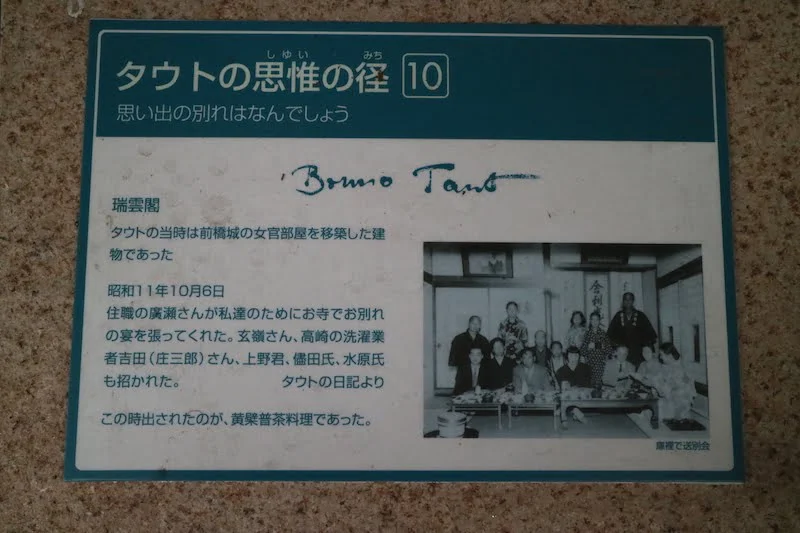 しゆい みち
タウトの思惟の径 10
思い出の別れはなんでしょう
Bruno Taut
瑞雲閣
タウトの当時は前橋城の女官部屋を移築した建
物であった
昭和11年10月6日
住職の廣瀬さんが私達のためにお寺でお別れ
の宴を張ってくれた。玄嶺さん、高崎の洗濯業
者吉田（庄三郎）さん、上野君、儘田氏、水原氏
も招かれた。 タウトの日記より
この時出されたのが、黄檗普茶料理であった。
庫裡で送別会